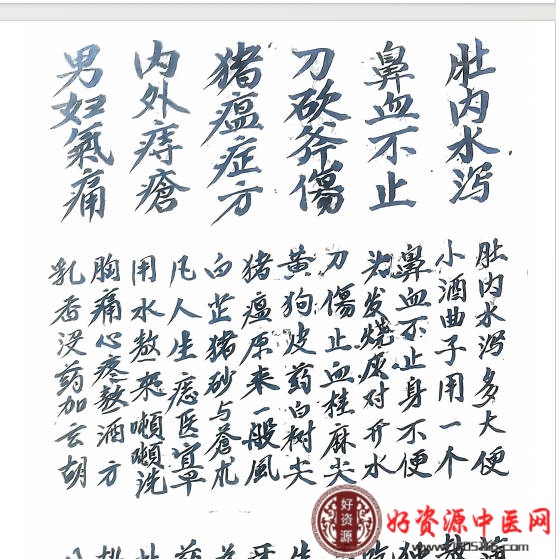 肚内水泻
鼻血不止
刀砍斧傷
猪瘟症方
内外痔瘡
男妇氣痛
肚内水泻多大便
小酒曲子用一个
鼻血不止身不便
头发烧灰对开水
刀傷止血桂麻尖
黄狗皮药白树尖
猪瘟原来一般风
白芷猪砂与蒼朮
凡人生痣医宜早
用水敖来噸噸洗
胸痛心疼敖酒方
乳香没药加玄胡
好资源
好资源中医网